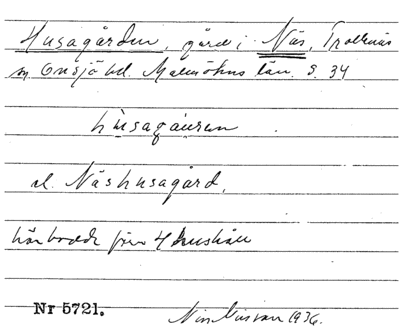 Husagården, gård i Näs, Trollenäs
sn Onsjö hd. Malmöhus län. S. 34
husagåuren
el. Näshusagård,
här bodde förr 4 hushåll
Nr 5721.
1936.